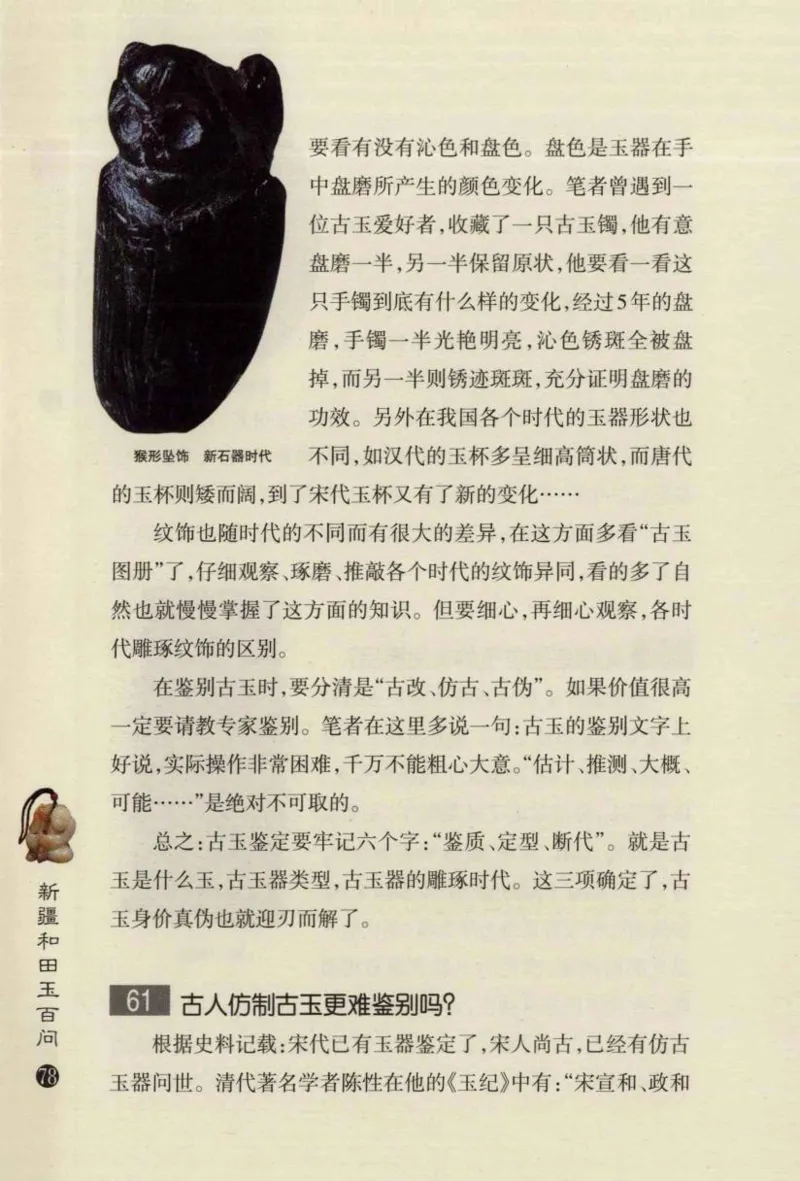 要看有没有沁色和盘色。盘色是玉器在手
中盘磨所产生的颜色变化。笔者曾遇到一
位古玉爱好者,收藏了一只古玉镯,他有意
盘磨一半,另一半保留原状,他要看一看这
只手镯到底有什么样的变化,经过5年的盘
磨,手镯一半光艳明亮,沁色锈斑全被盘
掉,而另一半则锈迹斑斑,充分证明盘磨的
功效。另外在我国各个时代的玉器形状也
不同,如汉代的玉杯多呈细高筒状,而唐代
猴形坠饰 新石器时代
的玉杯则矮而阔,到了宋代玉杯又有了新的变化……
纹饰也随时代的不同而有很大的差异,在这方面多看“古玉
图册”了,仔细观察、琢磨、推敲各个时代的纹饰异同,看的多了自
然也就慢慢掌握了这方面的知识。但要细心,再细心观察,各时
代雕琢纹饰的区别。
在鉴别古玉时,要分清是“古改、仿古、古伪”。如果价值很高
一定要请教专家鉴别。笔者在这里多说一句:古玉的鉴别文字上
好说,实际操作非常困难,千万不能粗心大意。“估计、推测、大概、
可能……”是绝对不可取的。
总之:古玉鉴定要牢记六个字:“鉴质、定型、断代”。就是古
玉是什么玉,古玉器类型,古玉器的雕琢时代。这三项确定了,古
玉身价真伪也就迎刃而解了。
61 古人仿制古玉更难鉴别吗?
根据史料记载:宋代已有玉器鉴定了,宋人尚古,已经有仿古
玉器问世。清代著名学者陈性在他的《玉纪》中有:“宋宣和、政和
新疆和田玉百问
78